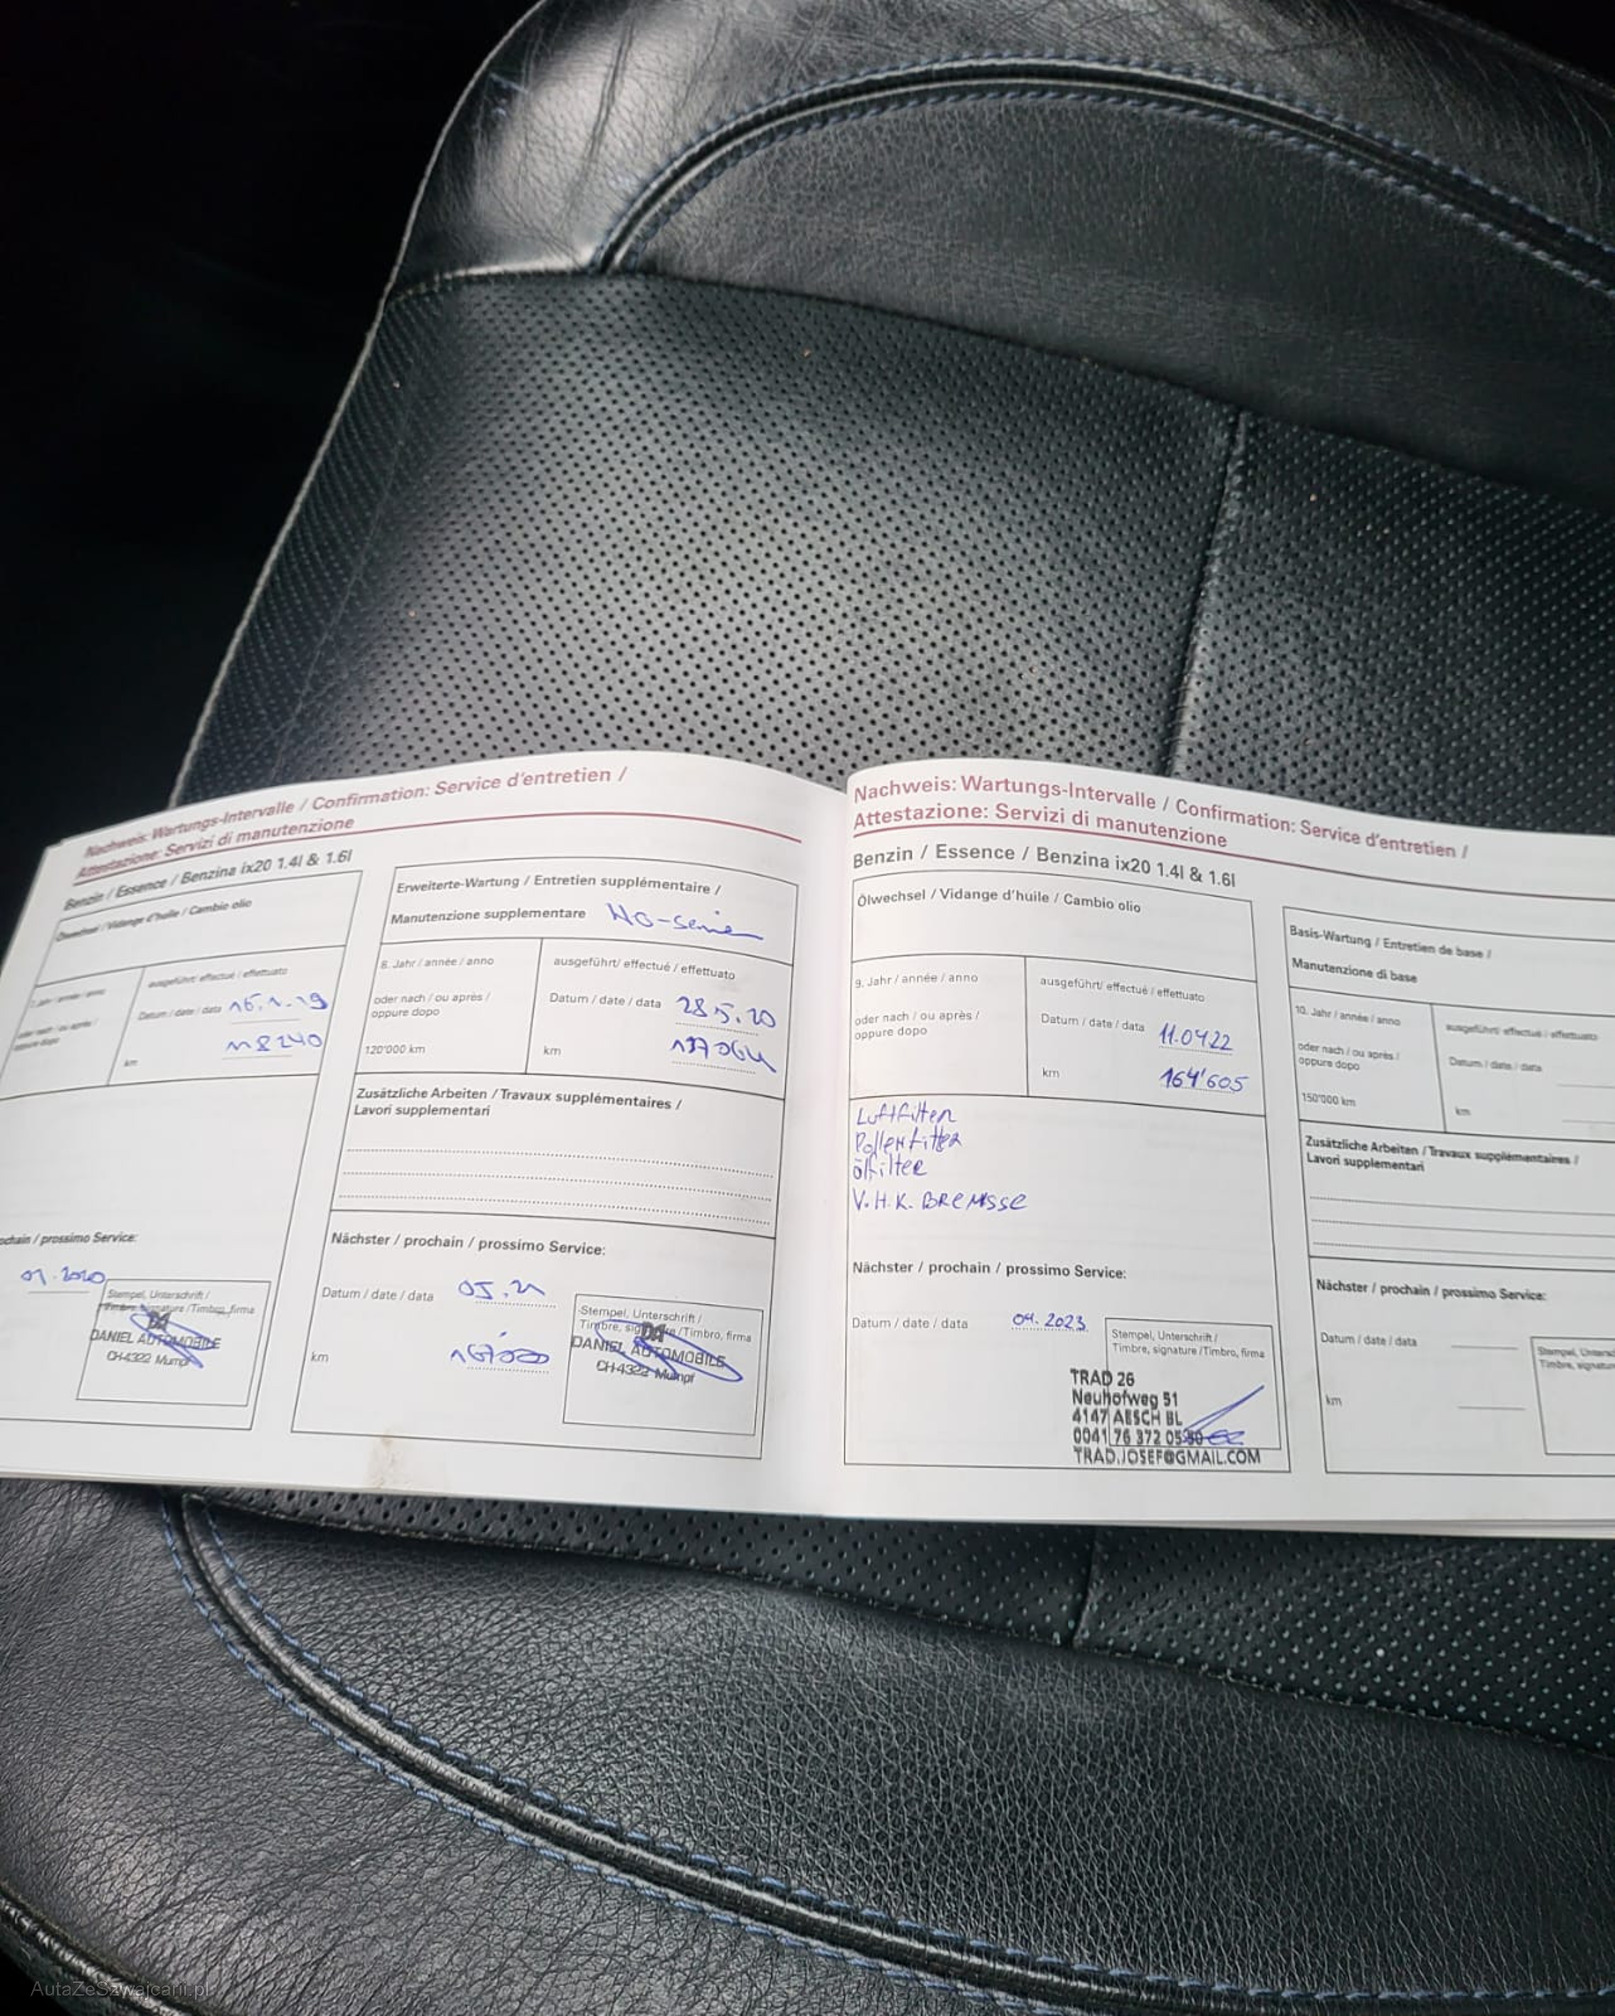 Nachweis: Wartungs-Intervalle / Confirmation: Service d'entretien /
Attestazione: Servizi di manutenzione
Benzin / Essence / Benzina ix20 1.4l & 1.6l
Ölwechsel / Vidange d'huile / Cambio olio
7. Jahr / année / anno
oder nach / ou après /
oppure dopo
ausgeführt/ effectué / effettuato
Datum / date / data 16.1.19
km 118240
prochain / prossimo Service:
01.2020
Stempel, Unterschrift /
Timbre, signature /Timbro, firma
DA
DANIEL AUTOMOBILE
CH-4322 Mumpf
Erweiterte-Wartung / Entretien supplémentaire /
Manutenzione supplementare
8. Jahr / année / anno
oder nach / ou après /
oppure dopo
120'000 km
ausgeführt/ effectué / effettuato
Datum / date / data 28.5.20
km 137064
Zusätzliche Arbeiten / Travaux supplémentaires /
Lavori supplementari
Nächster / prochain / prossimo Service:
Datum / date / data 05.21
km
Stempel, Unterschrift /
Timbre, signature /Timbro, firma
DA
DANIEL AUTOMOBILE
CH-4322 Mumpf
Nachweis: Wartungs-Intervalle / Confirmation: Service d'entretien /
Attestazione: Servizi di manutenzione
Benzin / Essence / Benzina ix20 1.4l & 1.6l
Ölwechsel / Vidange d'huile / Cambio olio
9. Jahr / année / anno
oder nach / ou après /
oppure dopo
ausgeführt/ effectué / effettuato
Datum / date / data 11.0422
km 164'605
Luftfilter
Pollenfilter
ölfilter
V.H.K. BREMSSE
Nächster / prochain / prossimo Service:
Datum / date / data 04.2023
Stempel, Unterschrift /
Timbre, signature /Timbro, firma
TRAD 26
Neuhofweg 51
4147 AESCH BL
0041 76 372 05
TRAD.JOSEF@GMAIL.COM
Basis-Wartung / Entretien de base /
Manutenzione di base
10. Jahr / année / anno
oder nach / ou après /
oppure dopo
150'000 km
ausgeführt/ effectué / effettuato
Datum / date / data
km
Zusätzliche Arbeiten / Travaux supplémentaires /
Lavori supplementari
Nächster / prochain / prossimo Service:
Datum / date / data
km
Stempel, Unters
Timbre, signatur
AutaZeSzwajcarii.pl